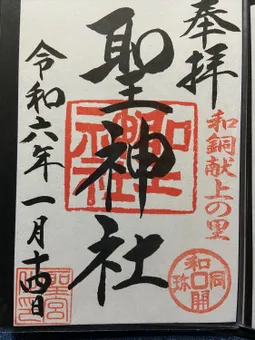 奉拝
和銅献上の里
聖神社
令和六年一月十四日
和同開珎